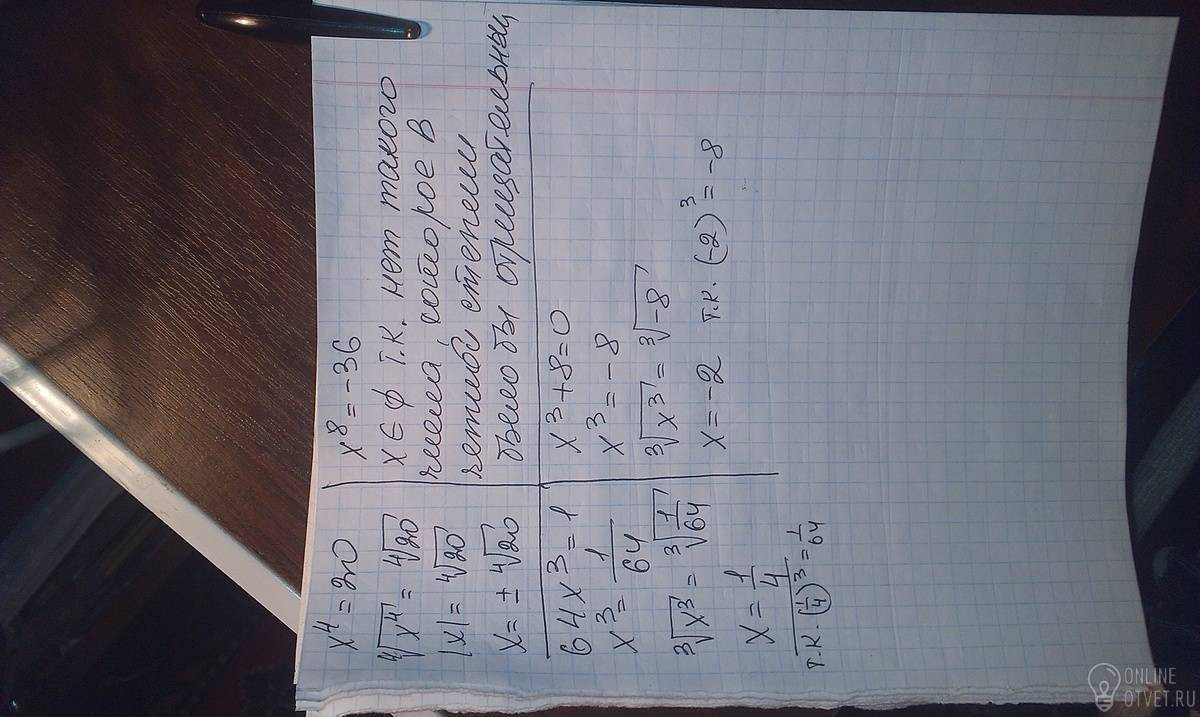 x⁴=20
⁴√x⁴ = ⁴√20
|x| = ⁴√20
x = ± ⁴√20
x⁸=-36
x∈ϕ т.к. нет такого
числа, которое в
четной степени
было бы отрицательным
64x³=1
x³= 1/64
³√x³ = ³√1/64
x = 1/4
т.к. (1/4)³ = 1/64
x³+8=0
x³=-8
³√x³ = ³√-8
x=-2 т.к. (-2)³=-8
ONLINE
OTVET.RU